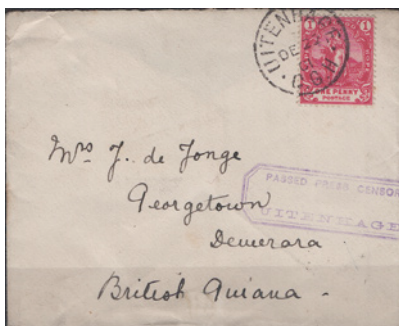 UITENHAGE
DE
C.G.H.
1 1
ONE PENNY
POSTAGE
Mrs J. de Jonge
Georgetown
Demerara
British Guiana -
PASSED PRESS CENSOR
UITENHAGE